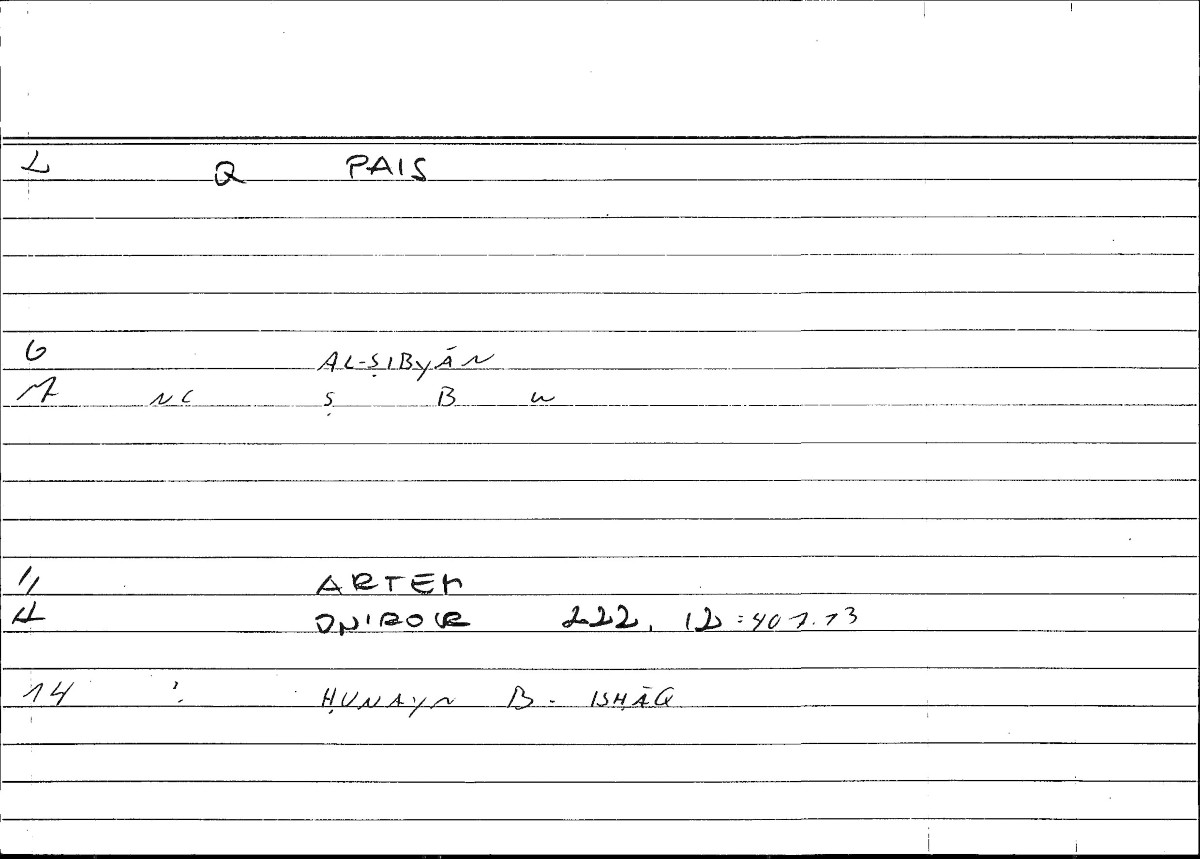 L Q PAIS
6 AL-ṢIBYĀN
7 NC Ṣ B W
11 ARTEM
A ONIROCR 222, 12:407.13
14 : ḤUNAYN B. ISḤĀQ